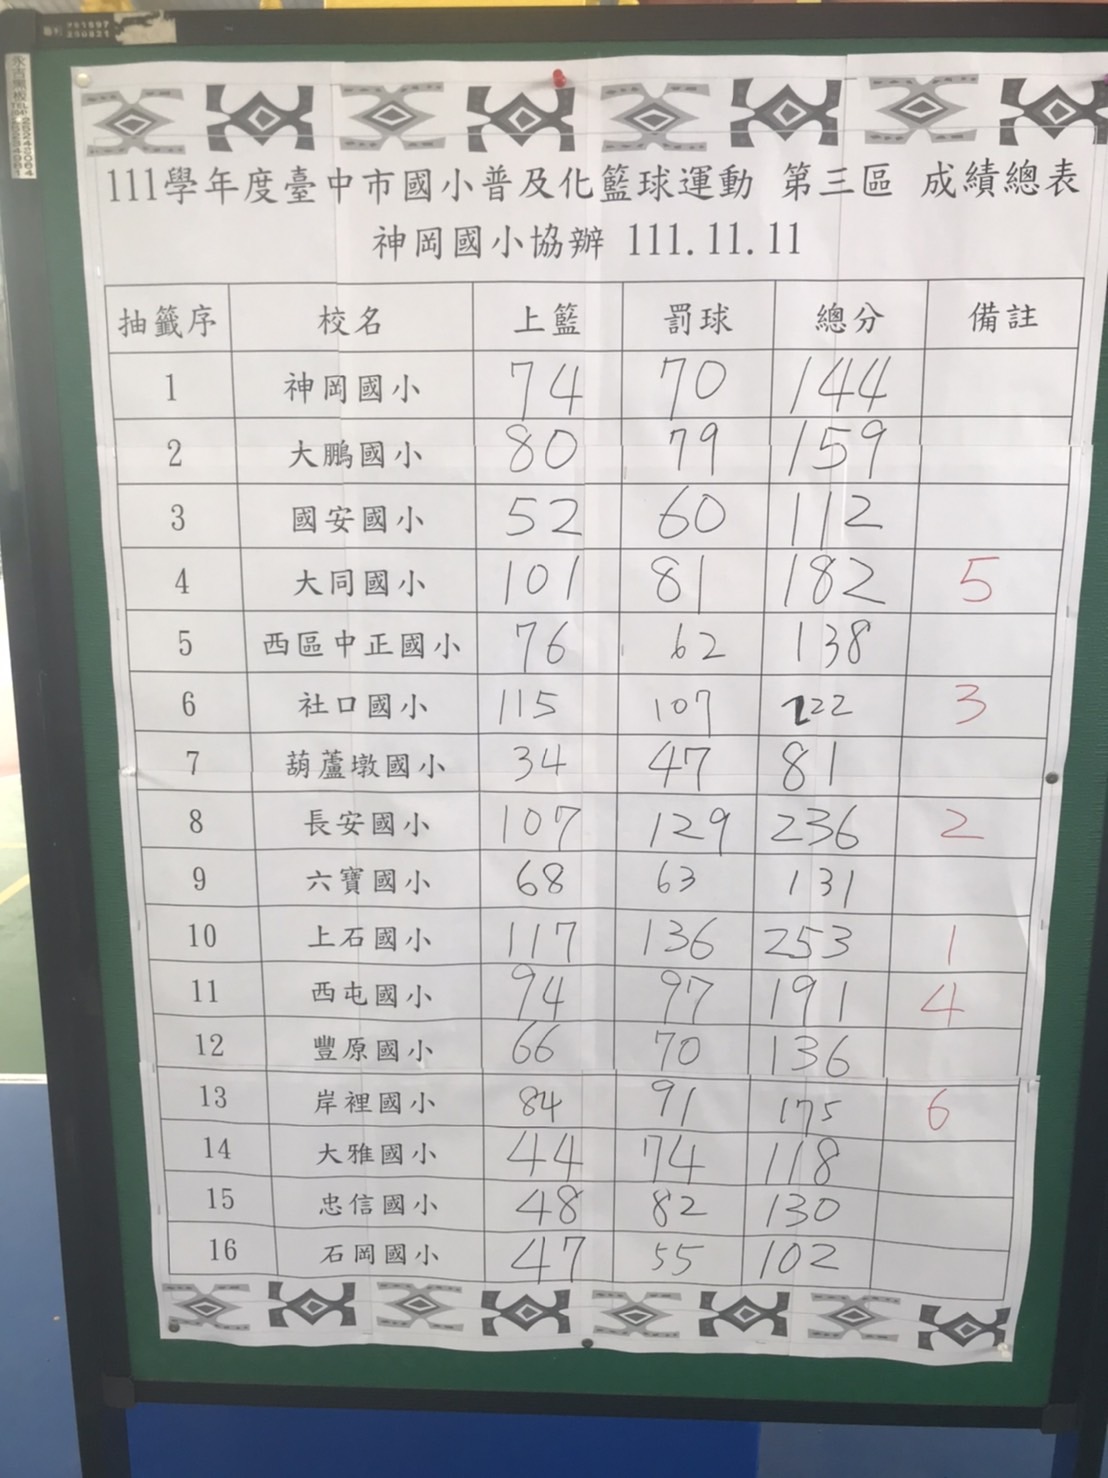 111學年度臺中市國小普及化籃球運動 第三區 成績總表
神岡國小協辦 111.11.11
抽籤序 校名 上籃 罰球 總分 備註
1 神岡國小 74 70 144
2 大鵬國小 80 79 159
3 國安國小 52 60 112
4 大同國小 101 81 182 5
5 西區中正國小 76 62 138
6 社口國小 115 107 222 3
7 葫蘆墩國小 34 47 81
8 長安國小 107 129 236 2
9 六寶國小 68 63 131
10 上石國小 117 136 253 1
11 西屯國小 94 97 191 4
12 豐原國小 66 70 136
13 岸裡國小 84 91 175 6
14 大雅國小 44 74 118
15 忠信國小 48 82 130
16 石岡國小 47 55 102